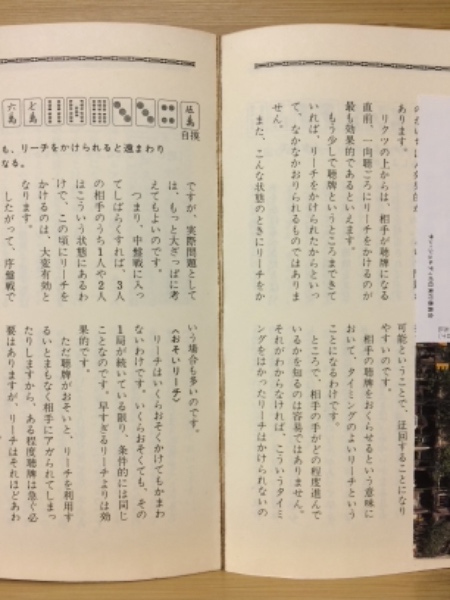 あります。
リクツの上からは、相手が聴牌になる
直前、一向聴ごろにリーチをかけるのが
最も効果的であるといえます。
もう少しで聴牌というところまできて
いれば、リーチをかけられたからといっ
て、なかなかおりられるものではありま
せん。
また、こんな状態のときにリーチをか
可能ということで、迂回することになり
やすいのです。
相手の聴牌をおくらせるという意味に
おいて、タイミングのよいリーチという
ことになるわけです。
ところで、相手の手がどの程度進んで
いるかを知るのは容易ではありません。
それがわからなければ、こういうタイミ
ングをはかったリーチはかけられないの
伍萬
七萬
六萬
自摸
も、リーチをかけられると遠まわり
なる。
ですが、実際問題として
は、もっと大ざっぱに考
えてもよいのです。
つまり、中盤戦に入っ
てしばらくすれば、3人
の相手のうち1人や2人
はこういう状態にあるわ
けで、この頃にリーチを
かけるのは、大変有効と
なります。
したがって、序盤戦で
いう場合も多いのです。
〈おそいリーチ〉
リーチはいくらおそくかけてもかまわ
ないわけです。いくらおそくても、その
1局が続いている限り、条件的には同じ
ことなのです。早すぎるリーチよりは効
果的です。
ただ聴牌がおそいと、リーチを利用す
るいとまもなく相手にアガられてしまっ
たりしますから、ある程度聴牌は急ぐ必
要はありますが、リーチはそれほどあわ